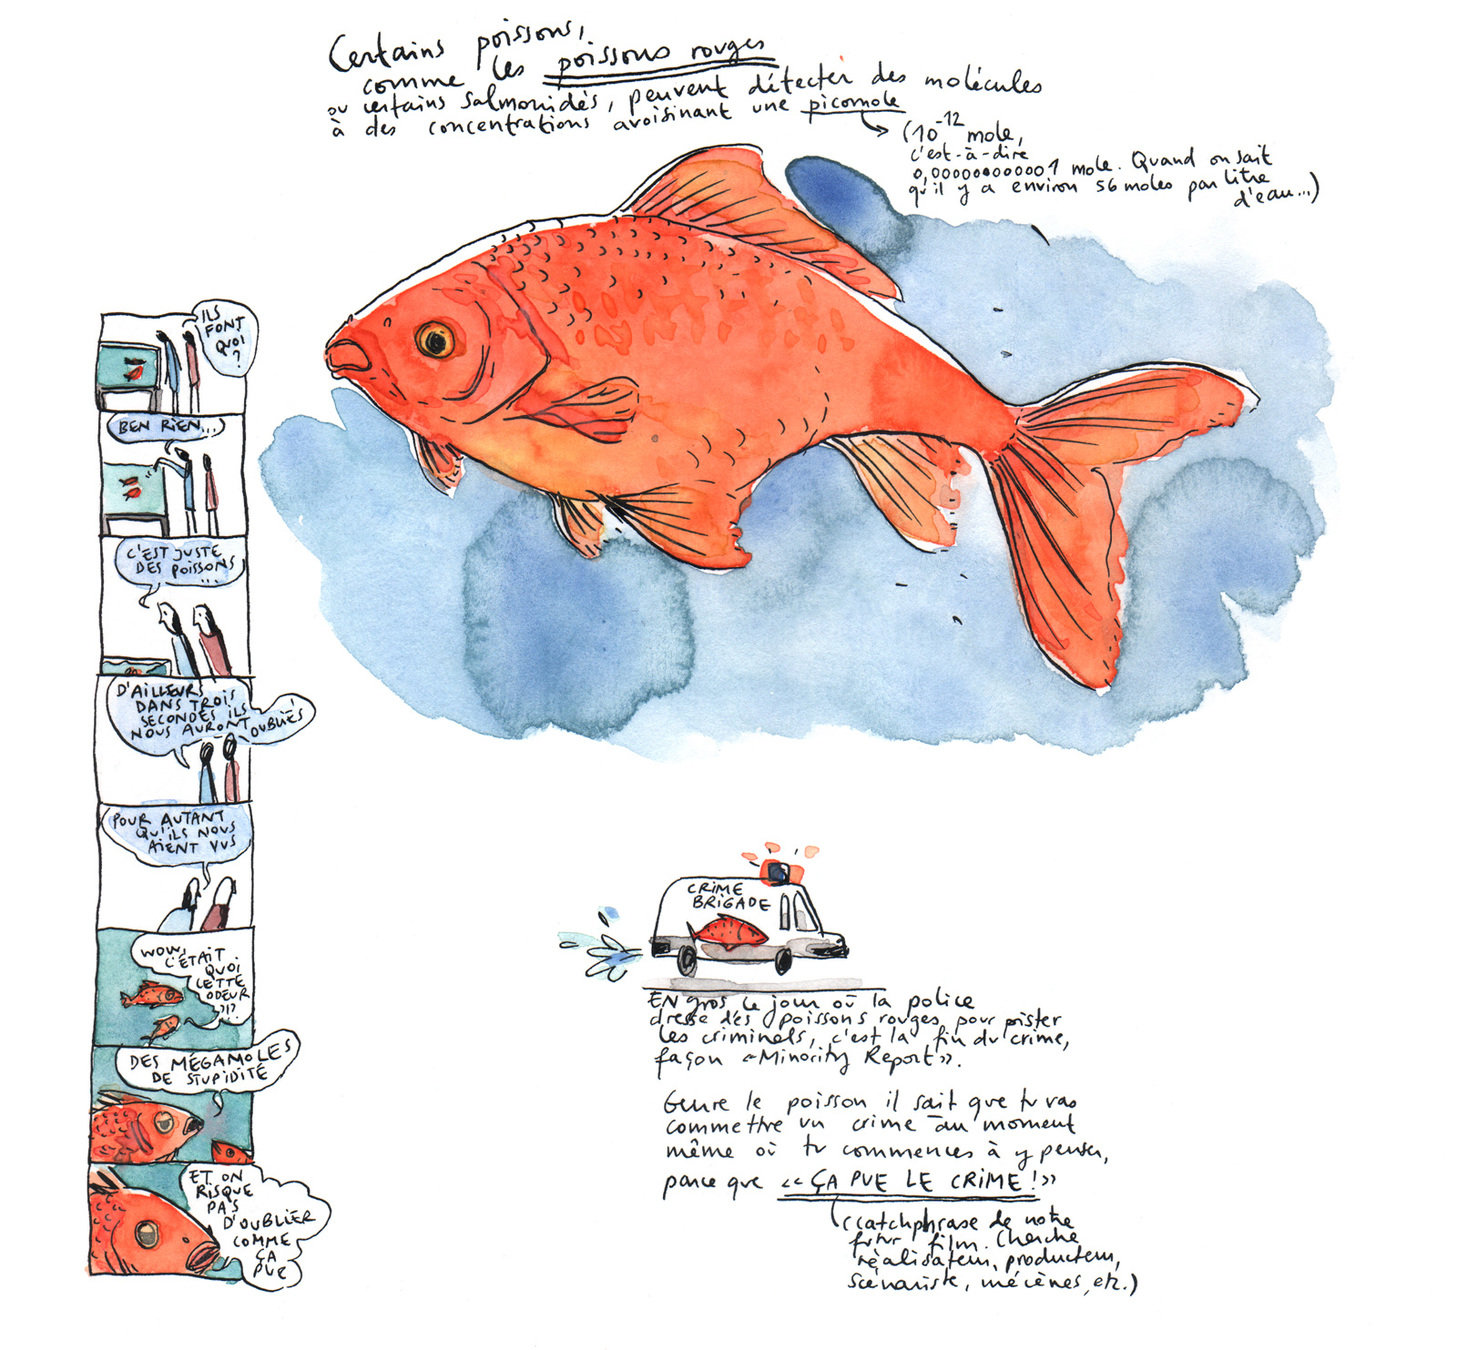 Certains poissons,
comme les poissons rouges
ou certains salmonidés, peuvent détecter des molécules
à des concentrations avoisinant une picomole
(10-12 mole,
c'est-à-dire
0,000000000001 mole. Quand on sait
qu'il y a environ 56 moles par litre
d'eau...)
ILS
FONT
QUOI
?
BEN RIEN...
C'EST JUSTE
DES POISSONS
...
D'AILLEURS
DANS TROIS
SECONDES ILS
NOUS AURONT OUBLIÉS
POUR AUTANT
QU'ILS NOUS
AIENT VUS
WOW,
C'ÉTAIT
QUOI
CETTE
ODEUR
?!?
DES MÉGAMOLES
DE STUPIDITÉ
ET ON
RISQUE
PAS
D'OUBLIER
COMME
ÇA
PUE
CRIME
BRIGADE
EN gros, le jour où la police
dresse des poissons rouges pour pister
les criminels, c'est la fin du crime,
façon «Minority Report».
Genre le poisson il sait que tu vas
commettre un crime au moment
même où tu commences à y penser,
parce que «ÇA PUE LE CRIME!»
(catchphrase de notre
futur film. Cherche
réalisateur, producteur,
scénariste, mécènes, etc.)